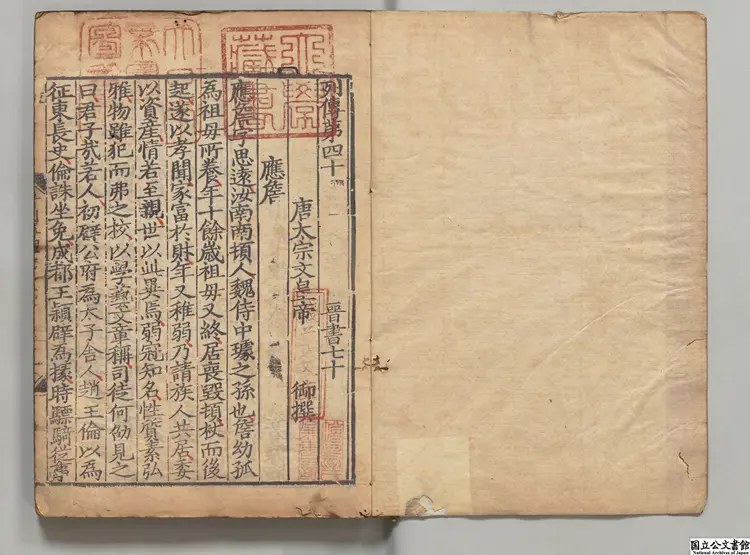 列傳第四十 晉書七十
唐太宗文皇帝 御撰
應詹
應詹字思遠汝南南頓人魏侍中璩之孫也詹幼孤
為祖母所養年十餘歲祖母又終居喪毀頓杖而後
起遂以孝聞家富於財年又稚弱乃請族人共居委
以資産情若至親世以此異焉弱冠知名性質素弘
雅物雖犯而弗之校以學藝文章稱司徒何劭見之
曰君子哉若人初辟公府為太子舍人趙王倫以為
征東長史倫誅坐免成都王頴辟為掾時驃騎從事
国立公文書館
National Archives of Japan